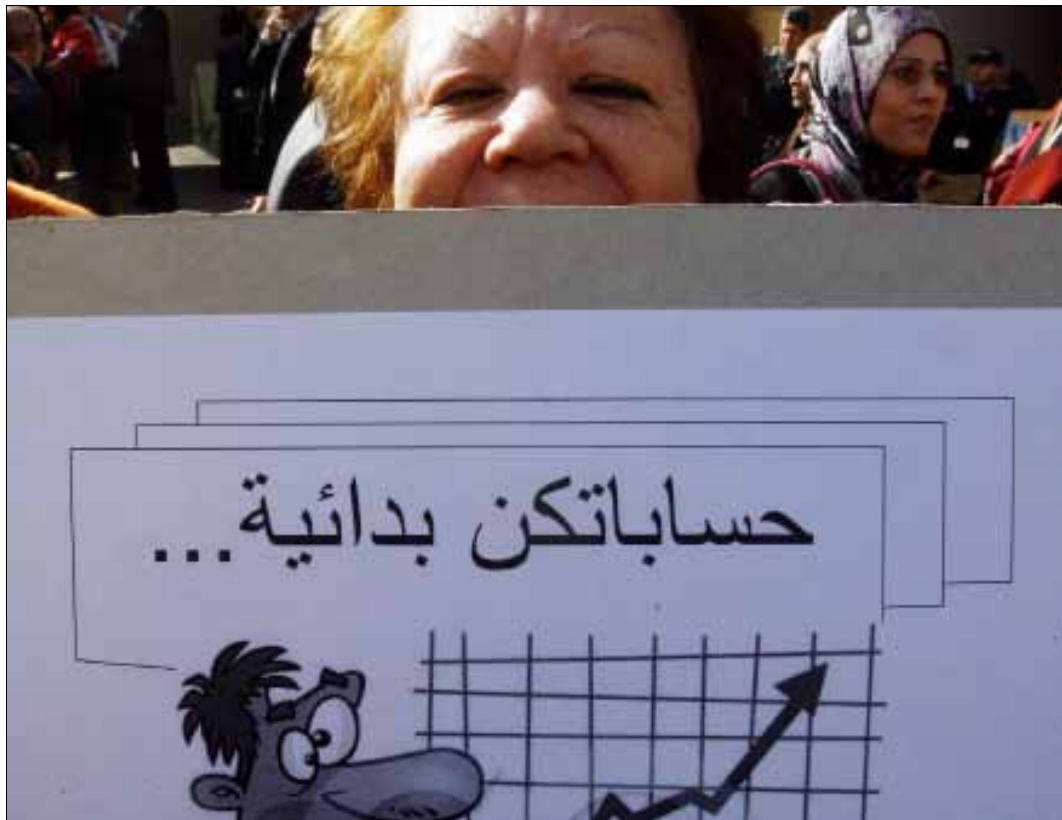 حساباتكن بدائية...